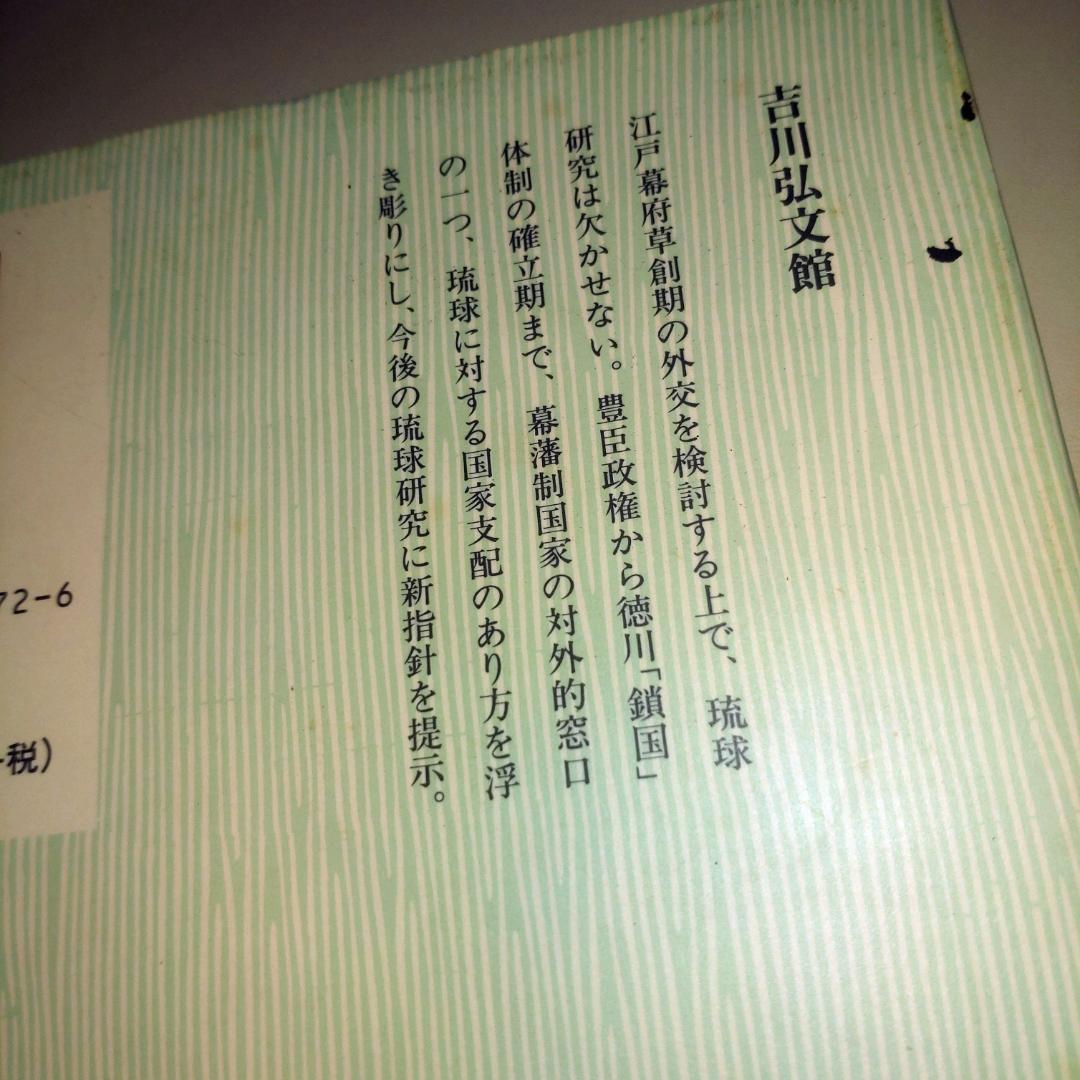 吉川弘文館
江戸幕府草創期の外交を検討する上で、琉球
研究は欠かせない。豊臣政権から徳川「鎖国」
体制の確立期まで、幕藩制国家の対外的窓口
の一つ、琉球に対する国家支配のあり方を浮
き彫りにし、今後の琉球研究に新指針を提示。
72-6
税)